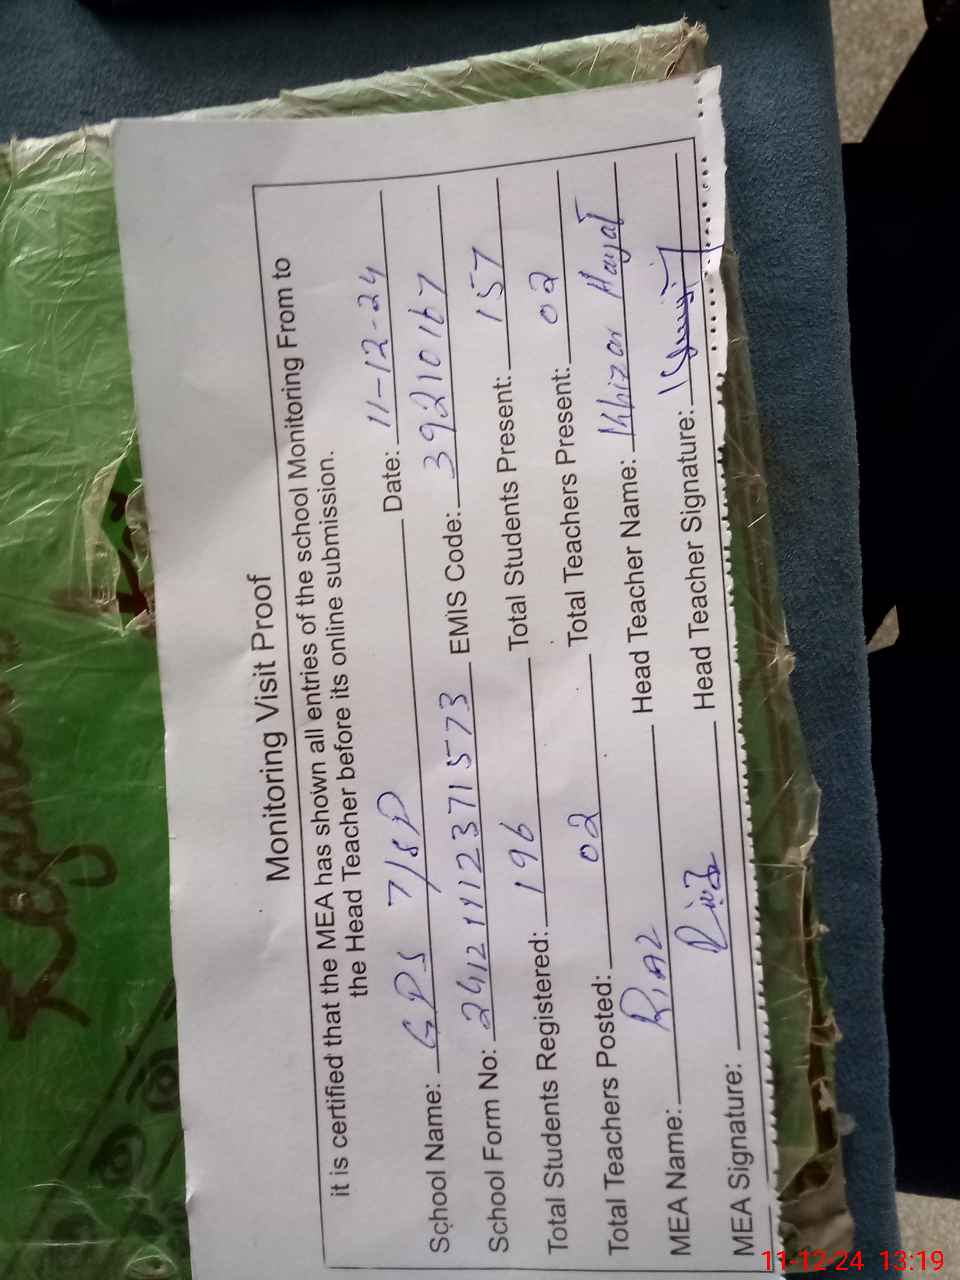 Monitoring Visit Proof
it is certified that the MEA has shown all entries of the school Monitoring From to
the Head Teacher before its online submission.
School Name: GPS 7/8P Date: 11-12-24
School Form No: 2412111237 1573 EMIS Code: 39210167
Total Students Registered: 196 Total Students Present: 157
Total Teachers Posted: 02 Total Teachers Present: 02
MEA Name: RIAZ Head Teacher Name: Khizar Hayat
MEA Signature: Riaz Head Teacher Signature:
11-12-24 13:19